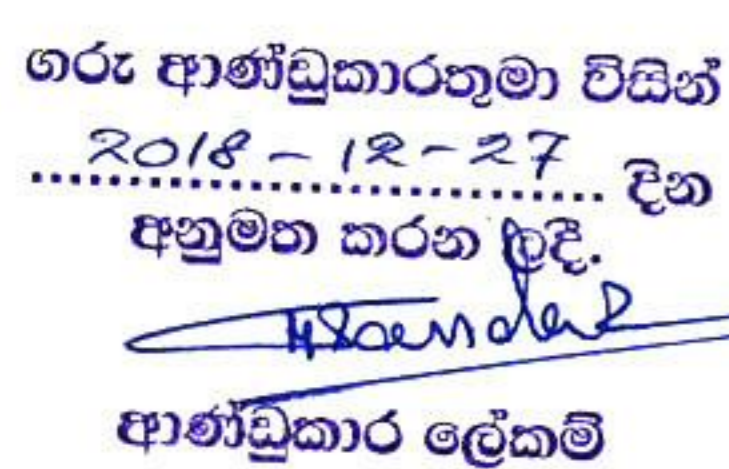 ගරු ආණ්ඩුකාරතුමා විසින්
2018 - 12 - 27 දින
අනුමත කරන ලදී.
ආණ්ඩුකාර ලේකම්